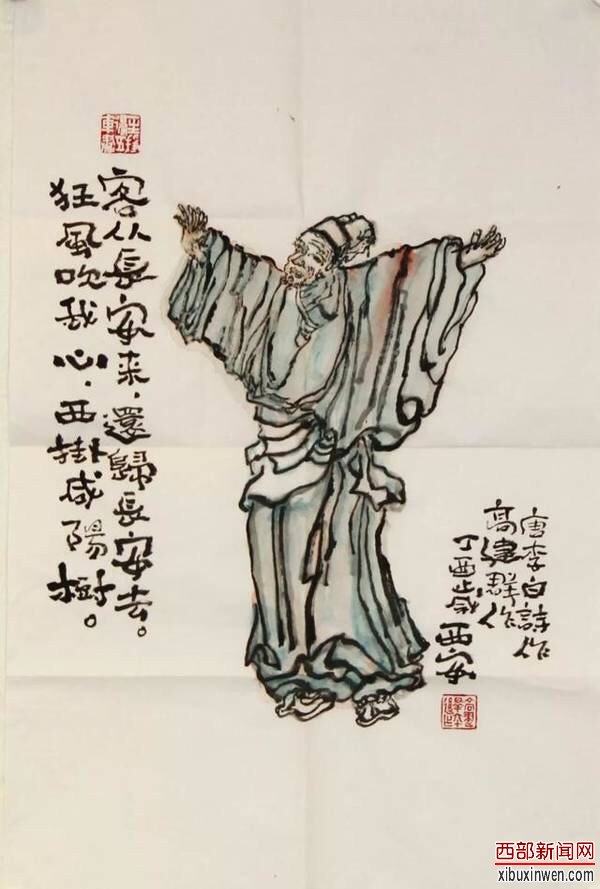 客从長安来，還歸長安去。
狂風吹我心，西掛咸陽樹。
唐李白詩作
高建群作
丁酉歲西安
西部新闻网
xibuxinwen.com